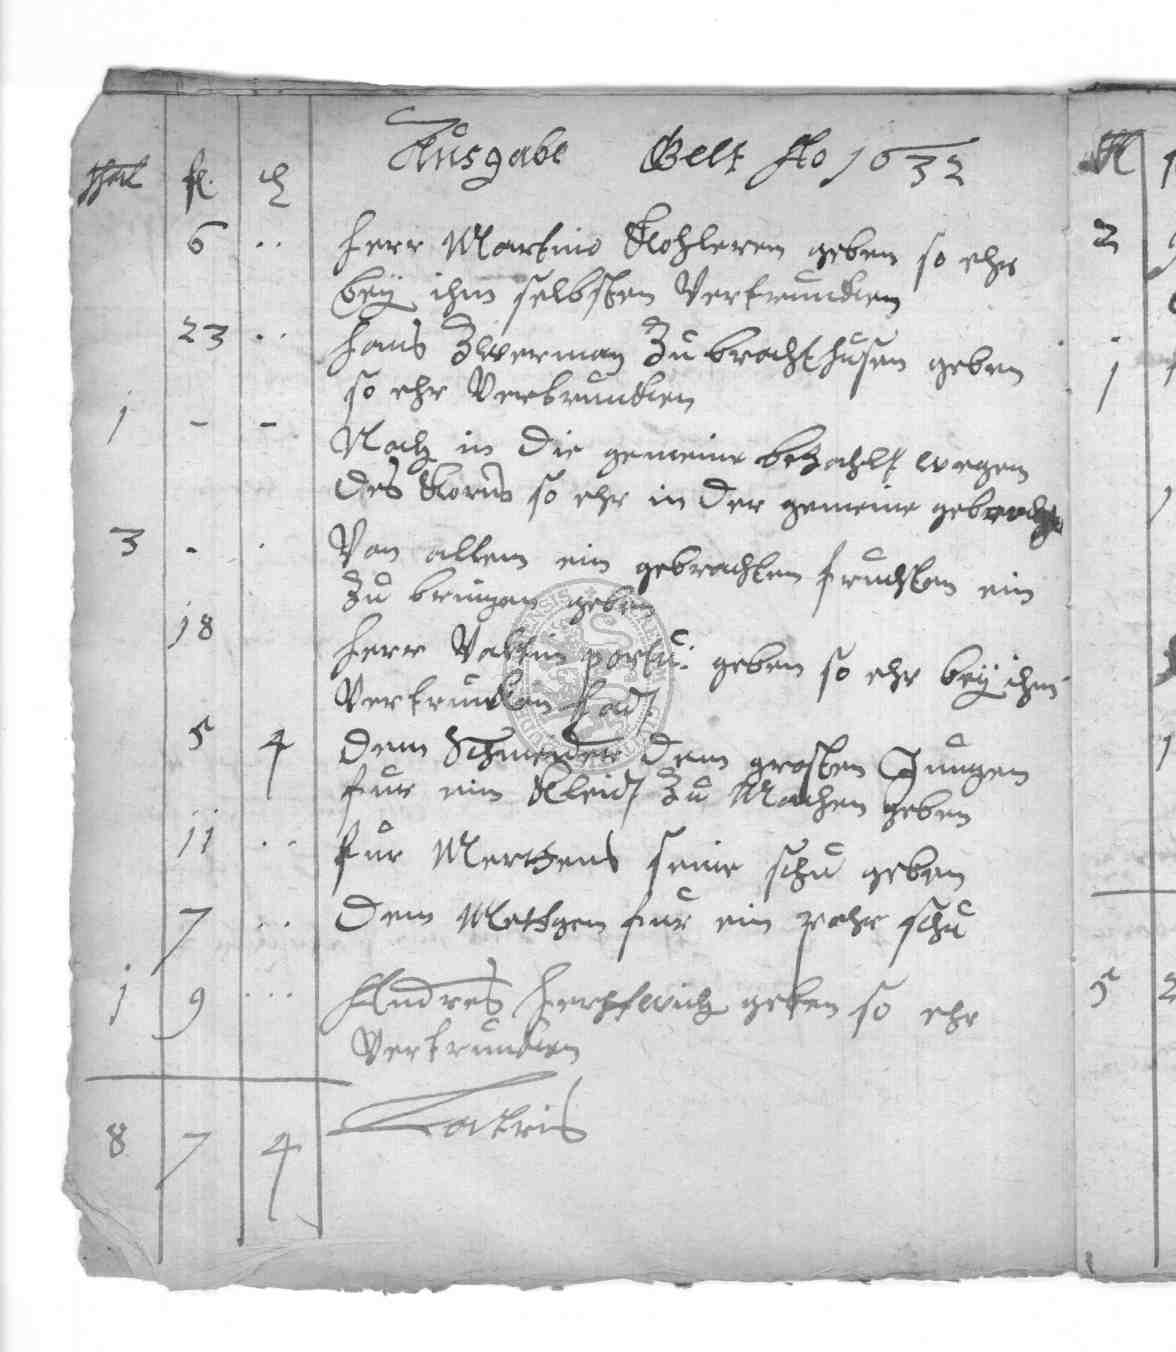 Ausgabe Gelt Ao 1632
thal fl. ₰
6 .. Herr Martino Kohleren geben so ehr
bey ihm selbsten Vertruncken
23 .. Hans Zwerman Zu brachthusen geben
so ehr Vertruncken
1 - - Noch in die gemeine bezahlt wegen
des Korns so ehr in der gemeine
3 . . Von allem ein gebrachten fruchten ein
Zu bringen geben
18 Herr Valtin geben so ehr bey ihm
Vertruncken hadt
5 4 dem Schneider dem grosten Jungen
fur ein Kleidt Zu Machen geben
11 .. fur Merthens seine schu geben
7 ... dem Methgen fur ein pahr schu
1 9 ... Andres geben so ehr
Vertruncken
8 7 4 Latris
2
1
5 2